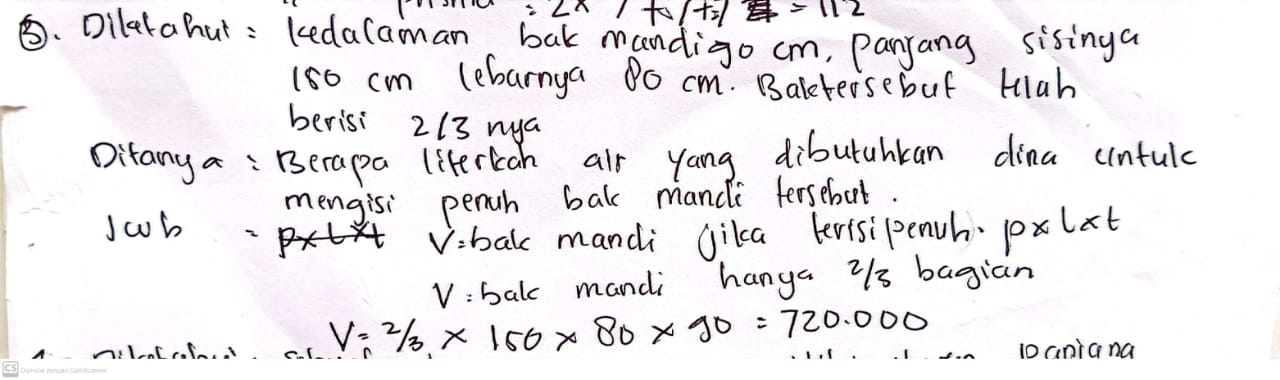 = 2x 7 = 112
3. Diketahui : kedalaman bak mandi 90 cm, panjang sisinya
150 cm lebarnya 80 cm. Bak tersebut telah
berisi 2/3 nya
Ditanya : Berapa literkah air yang dibutuhkan dina untuk
mengisi penuh bak mandi tersebut.
Jwb = pxlxt V=bak mandi jika terisi penuh. pxlxt
V=bak mandi hanya 2/3 bagian
V= 2/3 x 150 x 80 x 90 = 720.000
Diketahui :
CS Dipindai dengan CamScanner